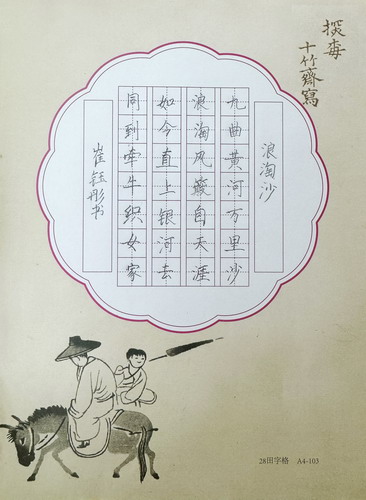 十竹齋寫
浪淘沙
九曲黄河万里沙
浪淘风簸自天涯
如今直上银河去
同到牵牛织女家
崔钰彤书
28田字格 A4-103